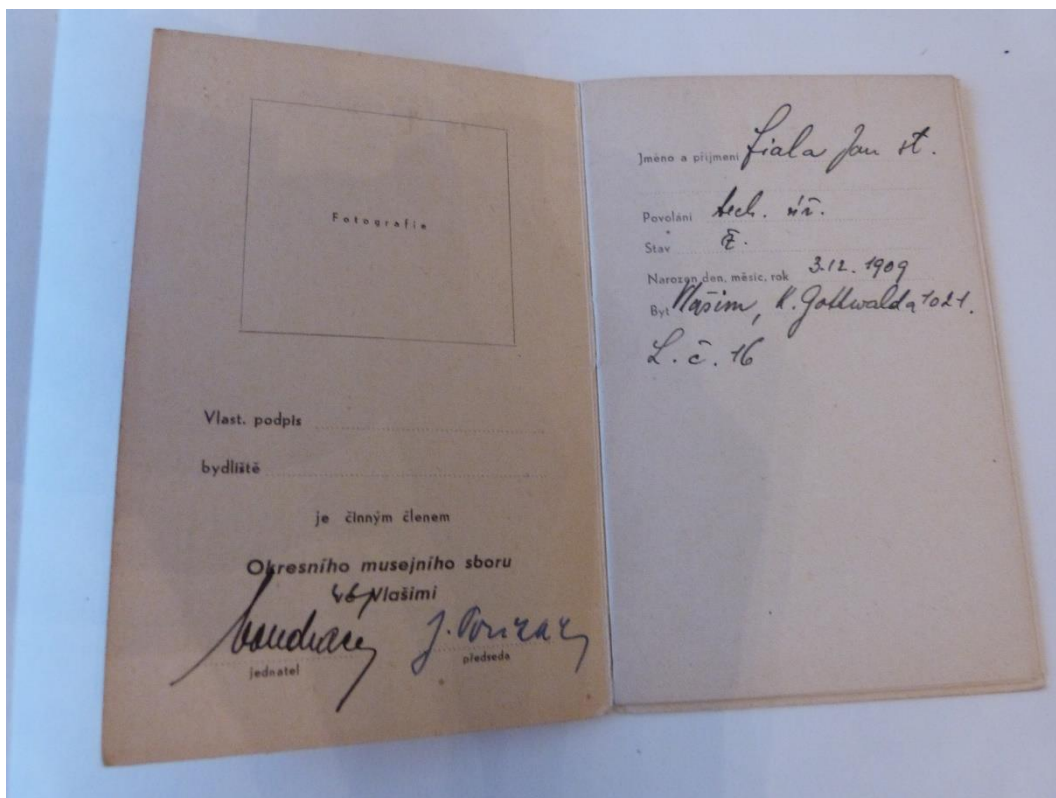 Fotografie
Vlast. podpis
bydliště
je činným členem
Okresního musejního sboru
ve Vlašimi
jednatel
předseda
Jméno a příjmení Fiala Jan st.
Povolání tech. úř.
Stav ž.
Narozen den, měsíc, rok 3.12. 1909
Byt Vlašim, K. Gottwalda 1021.
L. č. 16